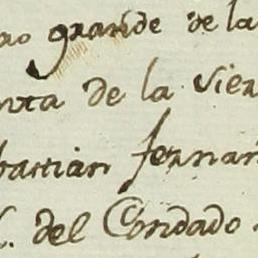 grande de la
de la Sier
bastian fernan
del Condado